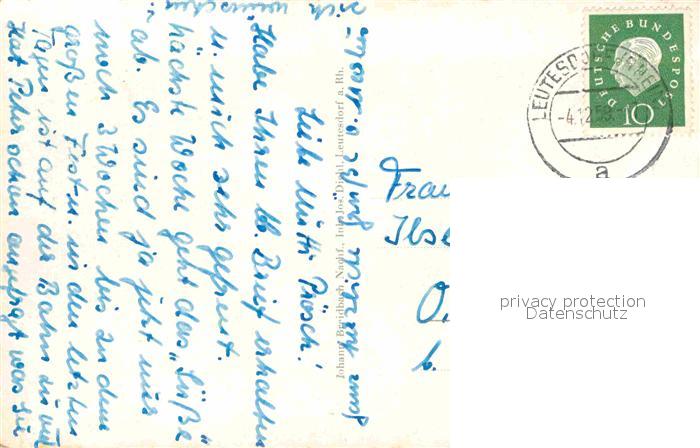 Liebe Mutti Präsch!
Habe Ihren lb Brief erhalten
u. mich sehr gefreut.
Nächste Woche geht das "Süße"
ab. Es sind ja jetzt nur
noch 3 Wochen bis zu dem
großen Fest u. in den letzten
Tagen ist auf der Bahn zu viel
Hat Peter schon angefragt was Sie
sich wünschen?
Johann Breidbach Nachf., Inh. Jos. Diehl, Leutesdorf a. Rh.
DEUTSCHE BUNDESPOST
10
LEUTESDORF
-4.12.59
a
Frau
Ilse
O.
b.
privacy protection
Datenschutz